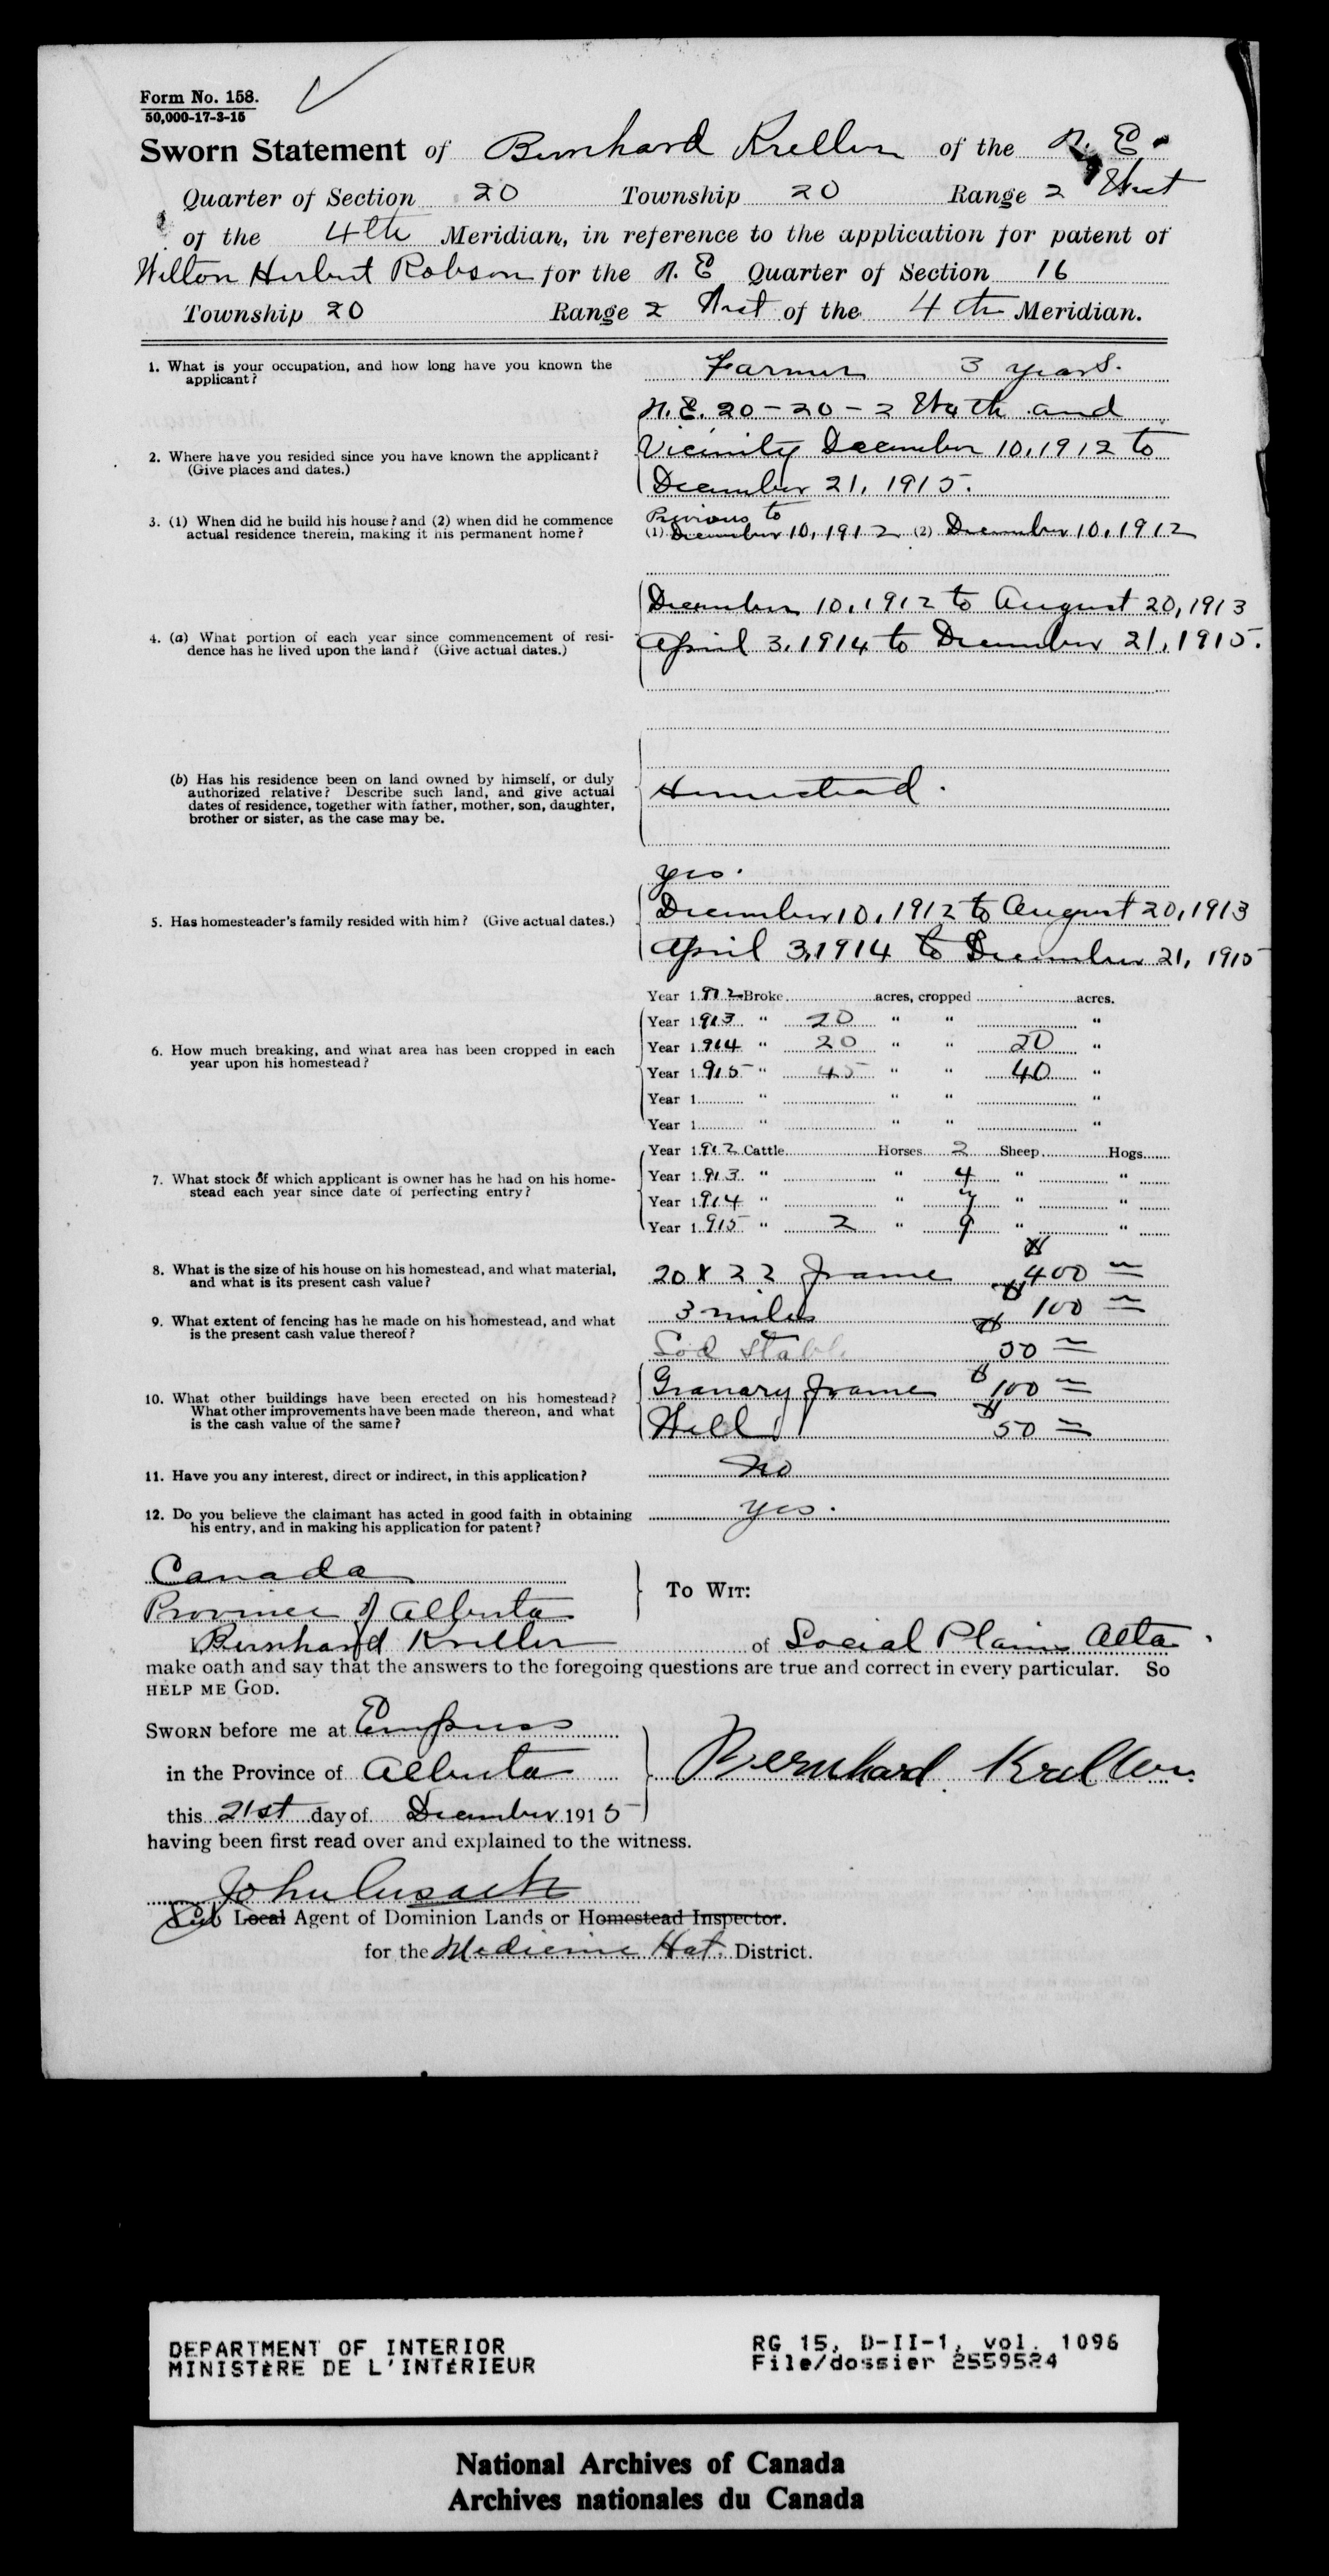 Form No. 158.
50,000-17-3-15
Sworn Statement of Bernhard Kreller of the N. E.
Quarter of Section 20 Township 20 Range 2 West
of the 4th Meridian, in reference to the application for patent of
Wilton Herbert Robson for the N. E Quarter of Section 16
Township 20 Range 2 West of the 4th Meridian.
1. What is your occupation, and how long have you known the applicant? Farmer 3 years.
2. Where have you resided since you have known the applicant? (Give places and dates.)
N.E. 20-20-2 W4th and
Vicinity December 10, 1912 to
December 21, 1915.
3. (1) When did he build his house? and (2) when did he commence
actual residence therein, making it his permanent home?
Previous to
(1) December 10, 1912 (2) December 10, 1912
4. (a) What portion of each year since commencement of resi-
dence has he lived upon the land? (Give actual dates.)
December 10, 1912 to August 20, 1913
April 3, 1914 to December 21, 1915.
(b) Has his residence been on land owned by himself, or duly
authorized relative? Describe such land, and give actual
dates of residence, together with father, mother, son, daughter,
brother or sister, as the case may be.
Homestead.
5. Has homesteader's family resided with him? (Give actual dates.)
yes.
December 10, 1912 to August 20, 1913
April 3, 1914 to December 21, 1915
6. How much breaking, and what area has been cropped in each
year upon his homestead?
Year 1912 Broke acres, cropped acres.
Year 1913 " 20 " " "
Year 1914 " 20 " " 20 "
Year 1915 " 45 " " 40 "
Year 1 " " " "
Year 1 " " " "
7. What stock of which applicant is owner has he had on his home-
stead each year since date of perfecting entry?
Year 1912 Cattle Horses 2 Sheep Hogs
Year 1913 " " 4 " "
Year 1914 " " 7 " "
Year 1915 " 2 " 9 " "
8. What is the size of his house on his homestead, and what material,
and what is its present cash value?
20 x 22 frame $400
9. What extent of fencing has he made on his homestead, and what
is the present cash value thereof?
3 miles $100
10. What other buildings have been erected on his homestead?
What other improvements have been made thereon, and what
is the cash value of the same?
Sod Stable $50
Granary frame $100
Well $50
11. Have you any interest, direct or indirect, in this application? no
12. Do you believe the claimant has acted in good faith in obtaining
his entry, and in making his application for patent? yes.
Canada
Province of Alberta
To Wit:
I Bernhard Kreller of Social Plains Alta.
make oath and say that the answers to the foregoing questions are true and correct in every particular. So
help me God.
Sworn before me at Empress
in the Province of Alberta
this 21st day of December 1915
Bernhard Kreller
having been first read over and explained to the witness.
John Cusack
Sub Local Agent of Dominion Lands or Homestead Inspector.
for the Medicine Hat District.
DEPARTMENT OF INTERIOR
MINISTÈRE DE L'INTÉRIEUR
RG 15, D-II-1, vol. 1096
File/dossier 2559524
National Archives of Canada
Archives nationales du Canada